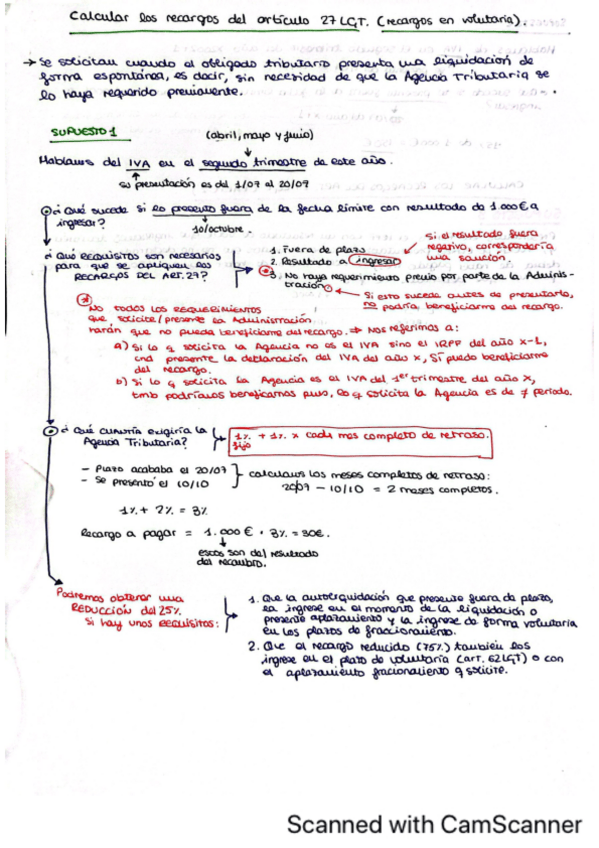 Calcular los recargos del artículo 27 LGT. (recargos en voluntaria).
→ Se solicitan cuando el obligado tributario presenta una liquidación de
forma espontánea, es decir, sin necesidad de que la Agencia Tributaria se
lo haya requerido previamente.
SUPUESTO 1
(abril, mayo y junio)
Hablamos del IVA en el segundo trimestre de este año.
su presentación es del 1/07 al 20/07
¿Qué sucede si lo presento fuera de la fecha límite con resultado de 1000€ a
ingresar?
10/octubre.
¿Qué REQUISITOS son necesarios
para que se apliquen los
RECARGOS DEL ART. 27?
1. Fuera de plazo
2. Resultado a ingresar
3. No haya requerimiento previo por parte de la Adminis-
tración
Si el resultado fuera
negativo, correspondería
una sanción.
Si esto sucede antes de presentarlo,
no podría beneficiarme del recargo.
No TODOS LOS REQUERIMIENTOS
que solicite/presente la Administración
harán que no pueda beneficiarme del recargo. ⇒ Nos referimos a:
a) Si lo q solicita la Agencia no es el IVA sino el IRPF del año x-1,
cnd presente la declaración del IVA del año x, SÍ puedo beneficiarme
del recargo.
b) Si lo q solicita la Agencia es el IVA del 1er trimestre del año X,
tmb podríamos beneficiarnos pues, lo q solicita la Agencia es de ≠ período.
¿Qué cuantía exigiría la
Agencia Tributaria?
1% + 1% x cada mes completo de retraso.
fijo
- Plazo acababa el 20/07
- Se presentó el 10/10
calculamos los meses completos de retraso:
20/07 - 10/10 = 2 meses completos.
1% + 2% = 3%
Recargo a pagar = 1.000€ · 3% = 30€.
estos son del resultado
del
Podremos obtener una
REDUCCIÓN del 25%
Si hay unos REQUISITOS:
1. Que la autoliquidación que presente fuera de plazo,
la ingrese en el momento de la liquidación o
presente aplazamiento y la ingrese de forma voluntaria
en los plazos de fraccionamiento.
2. Que el recargo reducido (75%) también los
ingrese en el plazo de voluntaria (art. 62 LGT) o con
el aplazamiento fraccionamiento q solicite.
Scanned with CamScanner